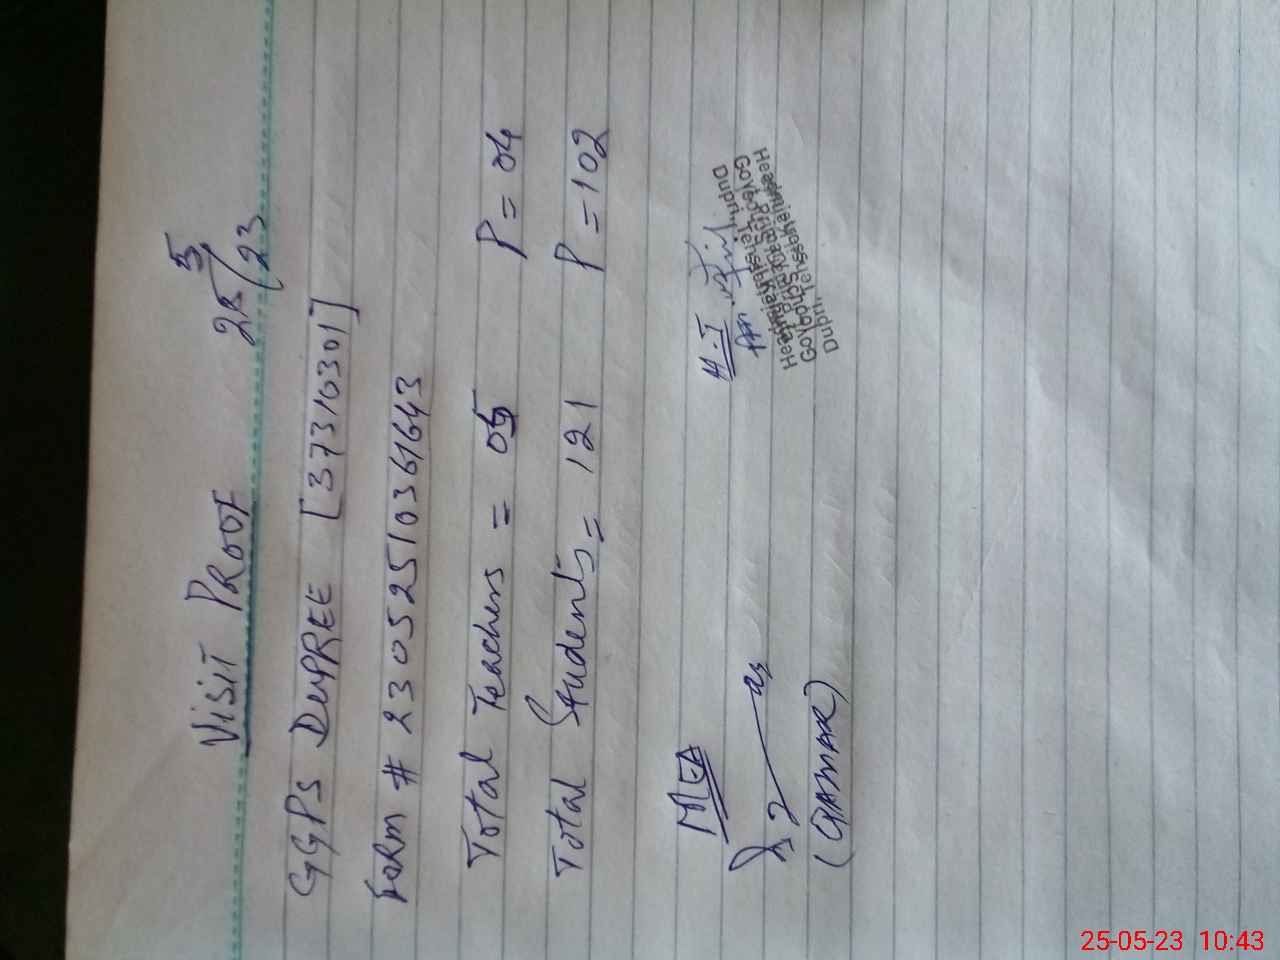 VISIT PROOF 25/5/23
GGPS DUPREE [37310301]
Form # 23052510361643
Total Teachers = 05 P = 04
Total Students = 121 P = 102
MEA H.T
(QAMAR)
Govt
Dupri, Tehsil
25-05-23 10:43